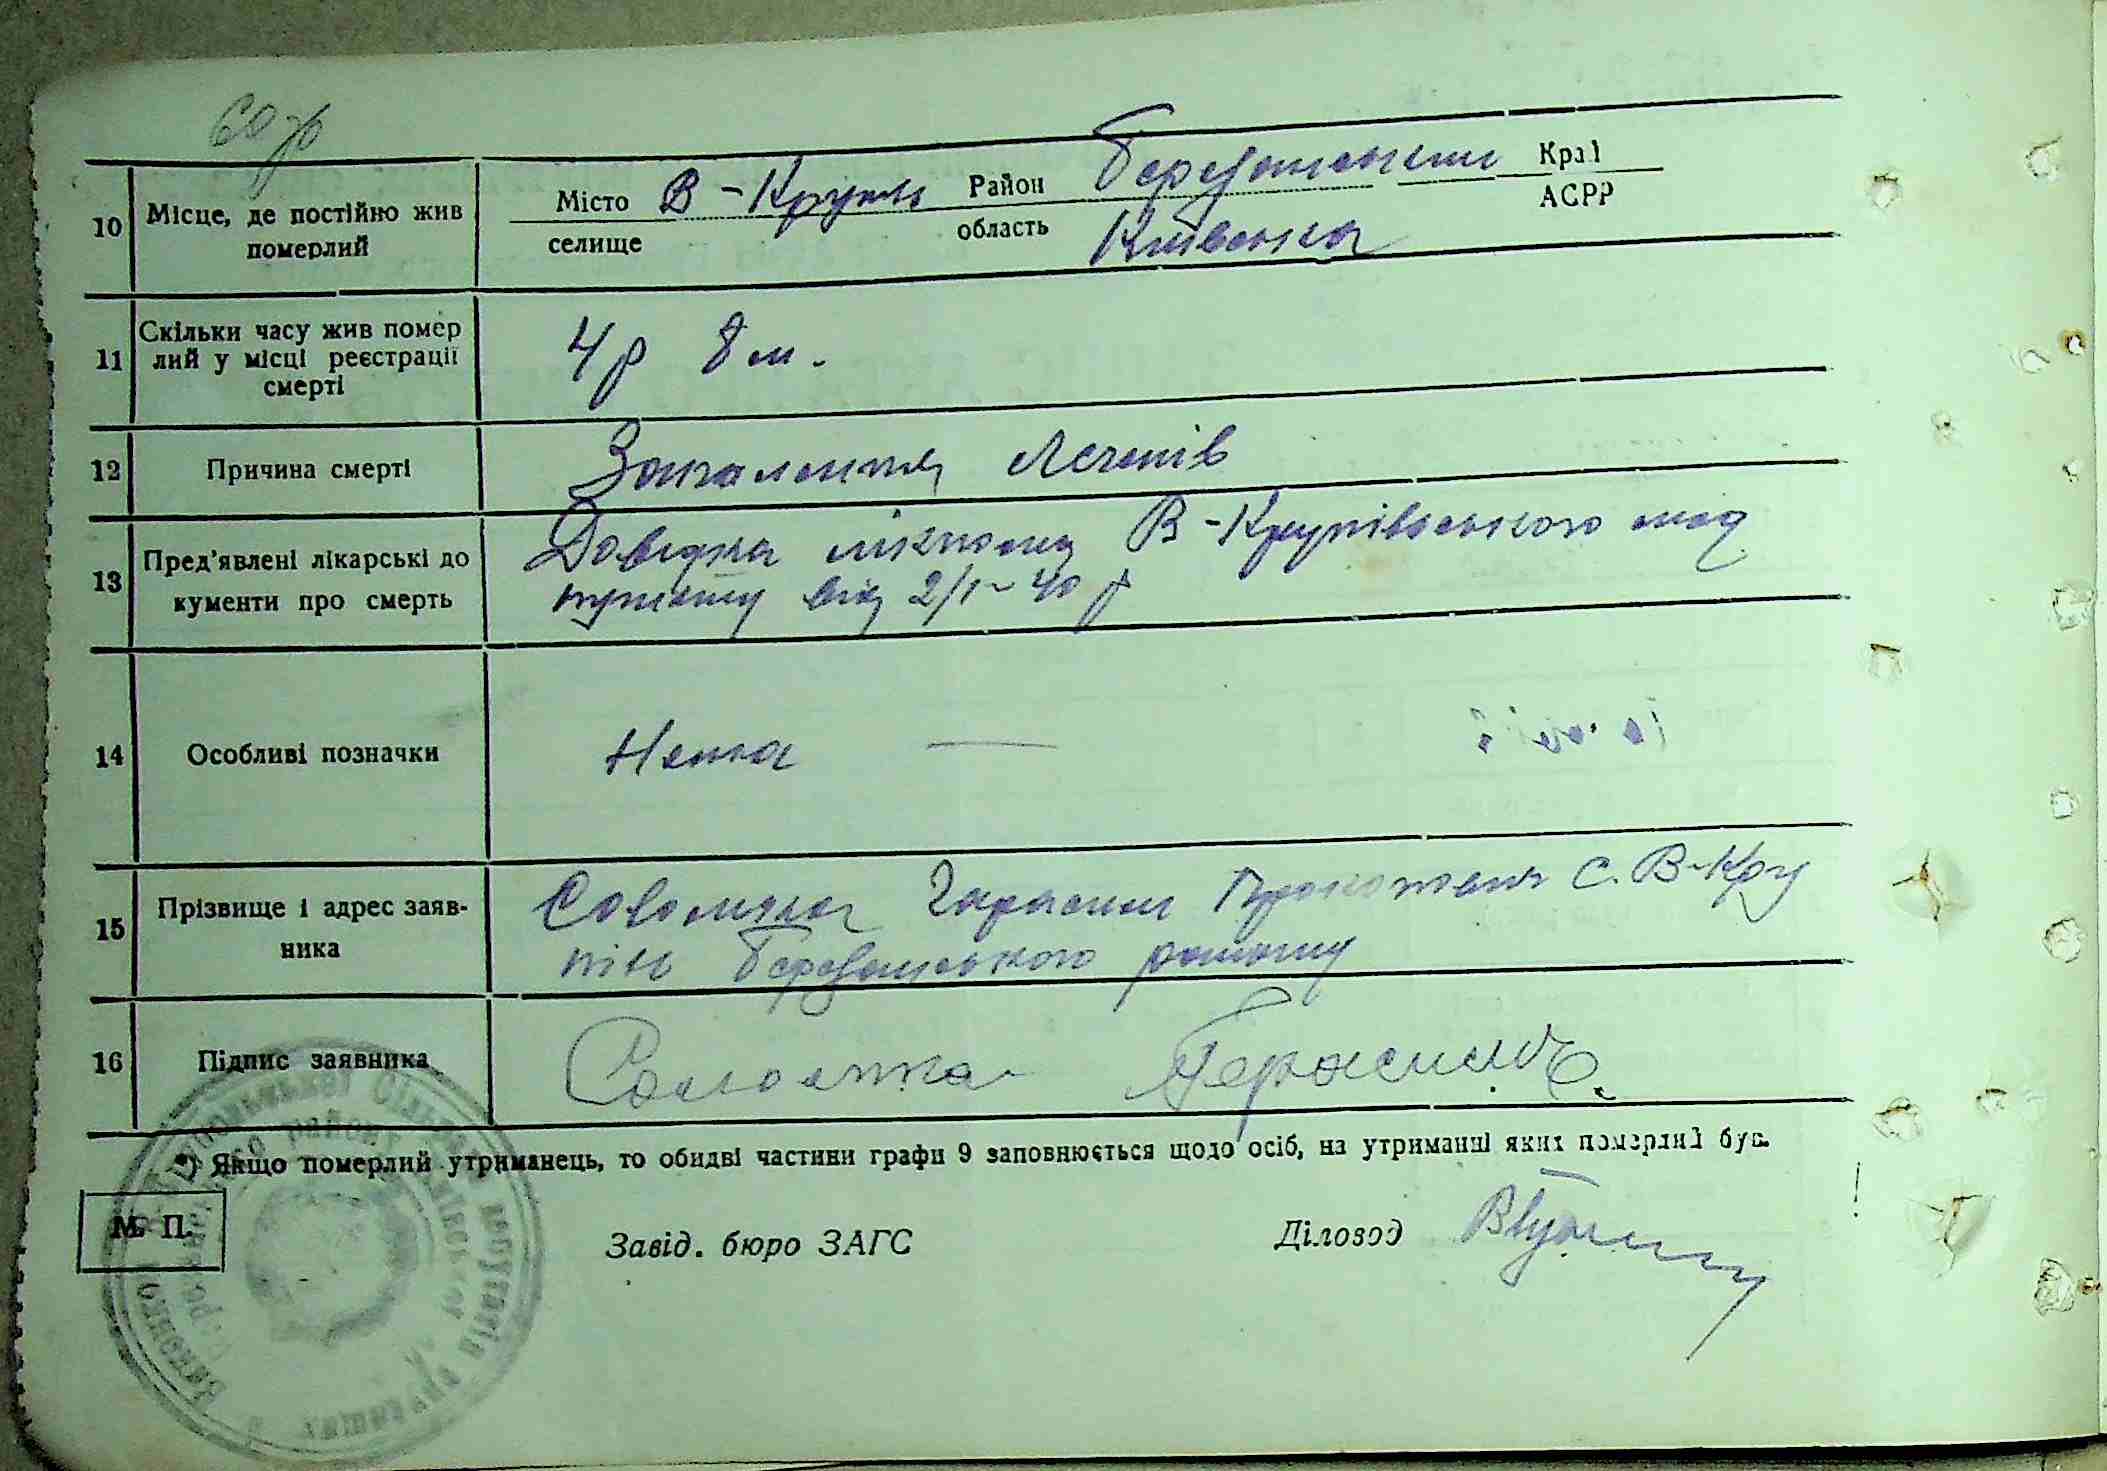 10 Місце, де постійно жив померлий
Місто В-Круполь Район Березанський Край
селище область Київська АСРР
11 Скільки часу жив помер
лий у місці реєстрації
смерті
4р 8м.
12 Причина смерті
Запалення легенів
13 Пред'явлені лікарські до
кументи про смерть
Довідка В-Крупільського мед
пункту від 2/I-40 р
14 Особливі позначки
Нема —
15 Прізвище і адрес заяв-
ника
Соломка Гарасим с. В-Кру
піль Березанського району
16 Підпис заявника
Соломка Герасим
*) Якщо померлий утриманець, то обидві частини графи 9 заповнюється щодо осіб, на утриманні яких померлий був.
М. П.
Завід. бюро ЗАГС
Діловод